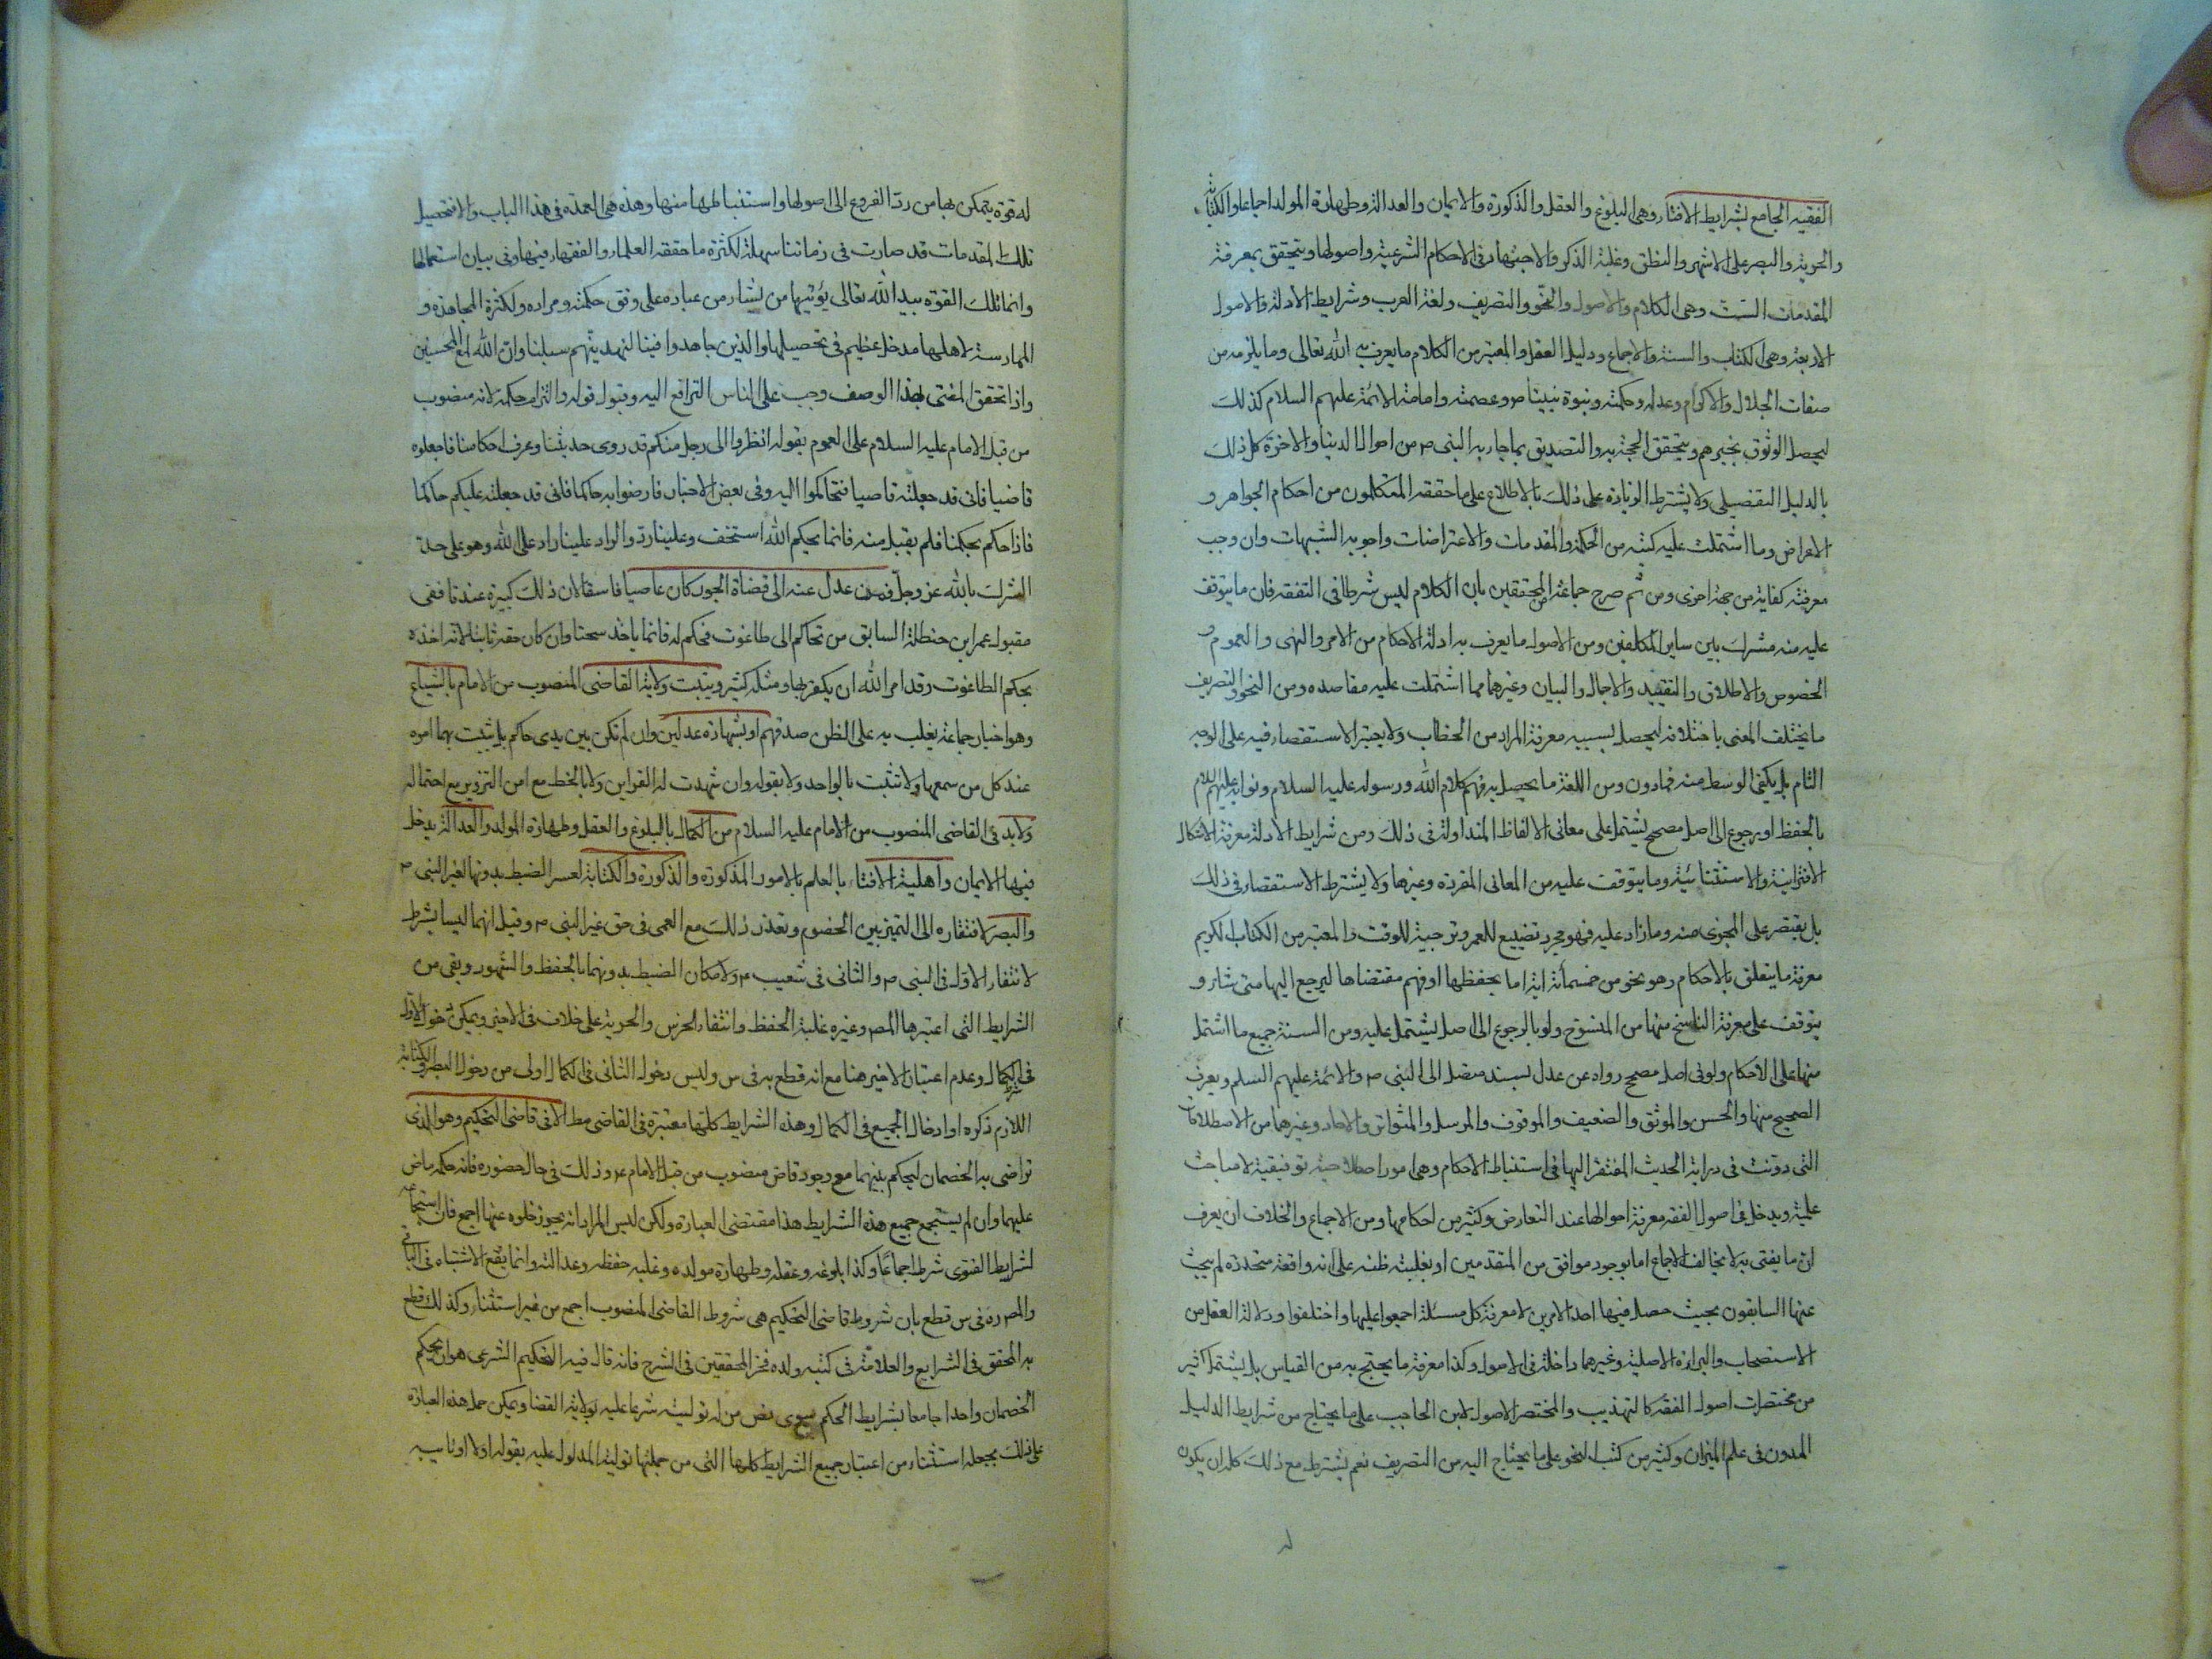 الفقيه الجامع لشرايط الافتاء وهى البلوغ والعقل والذكورة والايمان والعدالة وطهارة المولد اجماعا والكتابة
والحرية والبصر على الاشهر والنطق وغلبة الذكر والاجتهاد فى الاحكام الشرعية واصولها ويتحقق بمعرفة
المقدمات الست وهى الكلام والاصول والنحو والتصريف ولغة العرب وشرايط الادلة والاصول
الاربعة وهى الكتاب والسنة والاجماع ودليل العقل والمعتبر من الكلام ما يعرف به الله تعالى وما يلزمه من
صفات الجلال والاكرام وعدله وحكمته ونبوة نبينا ص وعصمته وامامة الائمة عليهم السلام كذلك
ليحصل الوثوق بخبرهم ويتحقق الحجة به والتصديق بما جاء به النبى ص من احوال الدنيا والاخرة كل ذلك
بالدليل التفصيلى ولا يشترط الزيادة على ذلك بالاطلاع على ما حققه المتكلمون من احكام الجواهر و
الاعراض وما اشتملت عليه كتبه من الحكمة والمقدمات والاعتراضات واجوبه الشبهات وان وجب
معرفته كفاية من جهة اخرى ومن ثم صرح جماعة من المحققين بان الكلام ليس شرطا فى التفقه فان ما يتوقف
عليه منه مشترك بين ساير المكلفين ومن الاصول ما يعرف به ادلة الاحكام من الامر والنهى والعموم و
الخصوص والاطلاق والتقييد والاجمال والبيان وغيرهما مما اشتملت عليه مقاصده ومن النحو والتصريف
ما يختلف المعنى باختلافه ليحصل بسببه معرفة المراد من الخطاب ولا يعتبر الاستقصاء فيه على الوجه
التام بل يكفى الوسط منه فما دون ومن اللغة ما يحصل به فهم كلام الله ورسوله عليه السلام ونوابه عليهم السلام
بالحفظ او يرجوع الى اصل مصحح يشتمل على معانى الالفاظ المتداولة فى ذلك ومن شرايط الادلة معرفة الاشكال
الاقترانية والاستثنائية وما يتوقف عليه من المعانى المفردة وغيرها ولا يشترط الاستقصاء فى ذلك
بل يقتصر على المجزى منه وما زاد عليه فهو مجرد تضييع للعمر وترجية للوقت والمعتبر من الكتاب الكريم
معرفة ما يتعلق بالاحكام وهو نحو من خمسمائة اية اما بحفظها او فهم مقتضاها ليرجع اليها متى شاء و
يتوقف على معرفة الناسخ منها من المنسوخ ولو بالرجوع الى اصل يشتمل عليه ومن السنة جميع ما اشتمل
منها على الاحكام ولو فى اصل مصحح رواه عن عدل بسند متصل الى النبى ص والائمة عليهم السلم ويعرف
الصحيح منها والحسن والموثق والضعيف والموقوف والمرسل والمتواتر والاحاد وغيرهما من الاصطلاحات
التى دونت فى دراية الحديث المفتقر اليها فى استنباط الاحكام وهى امور اصطلاحية توقيفية لا مباحث
علمية ويدخل فى اصول الفقه معرفة احوالها عند التعارض وكثير من احكامها ومن الاجماع والخلاف ان يعرف
ان ما يفتى به لا يخالف الاجماع اما بوجود موافق من المتقدمين او بغلبة ظنه على انه واقعة متجددة لم يبحث
عنها السابقون بحيث حصل فيها احد الامرين لا معرفة كل مسئلة اجمعوا عليها واختلفوا ودلالة العقل من
الاستصحاب والبراءة الاصلية وغيرهما داخلة فى الاصول وكذا معرفة ما يحتج به من القياس بل يشتمل اكثير
من مختصرات اصول الفقه كالتهذيب والمختصر الاصول لابن الحاجب على ما يحتاج من شرايط الدليل
المدون فى علم الميزان وكثير من كتب النحو على ما يحتاج اليه من التصريف نعم يشترط مع ذلك كله ان يكون
له
له قوة يتمكن بها من رد الفروع الى اصولها واستنباطها منها وهذه هى العمدة فى هذا الباب والا فتحصيل
تلك المقدمات قد صارت فى زماننا سهلة لكثرة ما حققه العلماء والفقهاء فيها وفى بيان استعمالها
وانما تلك القوة بيد الله تعالى يؤتيها من يشاء من عباده على وفق حكمته ومراده ولكثرة المجاهدة و
الممارسة لاهلها مدخل عظيم فى تحصيلها والذين جاهدوا فينا لنهدينهم سبلنا وان الله لمع المحسنين
واذا تحقق المفتى بهذا الوصف وجب على الناس الترافع اليه وقبول قوله والتزام حكمه لانه منصوب
من قبل الامام عليه السلام على العموم بقوله انظروا الى رجل منكم قد روى حديثنا وعرف احكامنا فاجعلوه
قاضيا فانى قد جعلته قاضيا فتحاكموا اليه وفى بعض الاخبار فارضوا به حاكما فانى قد جعلته عليكم حاكما
فاذا حكم بحكمنا فلم يقبل منه فانما بحكم الله استخف وعلينا رد والراد علينا راد على الله وهو على حد
الشرك بالله عز وجل فمن عدل عنه الى قضاة الجور كان عاصيا فاسقا لان ذلك كبيرة عندنا ففى
مقبول عمر ابن حنظلة السابق من تحاكم الى طاغوت فحكم له فانما ياخذ سحتا وان كان حقه ثابتا لانه اخذه
بحكم الطاغوت وقد امر الله ان يكفر بها ومثله كثير ويثبت ولاية القاضى المنصوب من الامام بالشياع
وهو اخبار جماعة يغلب به على الظن صدقهم او بشهادة عدلين وان لم تكن بين يدى حاكم بل يثبت بهما امره
عند كل من سمعها ولا تثبت بالواحد ولا بقوله وان شهدت له القراين ولا بالخط مع امن التزوير مع احتماله
ولابد فى القاضى المنصوب من الامام عليه السلام من الكمال بالبلوغ والعقل وطهارة المولد والعدالة يدخل
فيها الايمان واهلية الافتاء بالعلم بالامور المذكوره والذكورة والكتابة لعسر الضبط بدونها لغير النبى ص
والبصر لافتقاره الى التميز بين الخصوم وتعذر ذلك مع العمى فى حق غير النبى ص وقيل انهما ليسا بشرط
لانتفاء الاول فى النبى ص والثانى فى شعيب م ولامكان الضبط بدونهما بالحفظ والشهود وبقى من
الشرايط التى اعتبرها المص وغيره غلبة الحفظ وانتفاء الخرس والحرية على خلاف فى الاخير ويمكن دخول الاول
فى شرط الكمال وعدم اعتبار الاخير هنا مع انه قطع به فى س وليس دخول الثانى فى الكمال اولى من دخول البصر والكتابة
اللازم ذكره او ادخال الجميع فى الكمال وهذه الشرايط كلها معتبرة فى القاضى مط الا فى قاضى التحكيم وهو الذى
تراضى به الخصمان ليحكم بينهما مع وجود قاض منصوب من قبل الامام ع وذلك فى حال حضوره فانه حكمه ماض
عليهما وان لم يستجمع جميع هذه الشرايط هذا مقتضى العبارة ولكن ليس المراد انه يجوز خلوه عنها اجمع فان استجماعه
لشرايط الفتوى شرط اجماعا وكذا بلوغه وعقله وطهارة مولده وغلبه حفظه وعدالته وانما يقع الاشتباه فى الباقى
والمص ره فى س قطع بان شروط قاضى التحكيم هى شروط القاضى المنصوب اجمع من غير استثناء وكذلك قطع
به المحقق فى الشرايع والعلامة فى كتبه وولده فخر المحققين فى الشرح فانه قال فيه التحكيم الشرعى هو ان يحكم
الخصمان واحدا جامعا لشرايط الحكم سوى نص من له توليته شرعا عليه بولاية القضا ويمكن حمل هذه العبارة
على ذلك بجعله استثناء من اعتبار جميع الشرايط كلها التى من جملتها توليته المدلول عليه بقوله اولا او نايبه